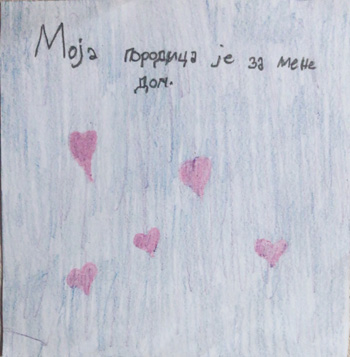 Моја породица је за мене
дом.